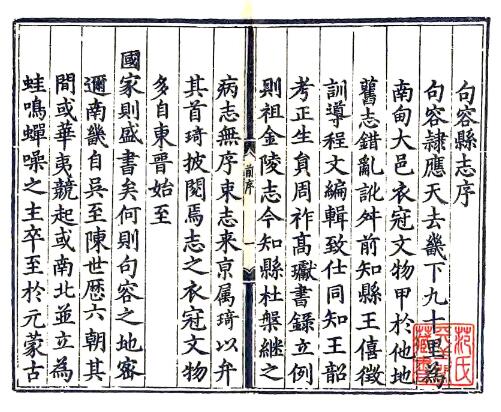 句容縣志序
句容隷應天去畿下九十里為
南甸大邑衣冠文物甲於他地
舊志錯亂訛舛前知縣王僖徵
訓導程文編輯致仕同知王韶
考正生員周祚高瓛書錄立例
則祖金陵志今知縣杜槃繼之
病志無序束志来京属琦以弁
其首琦披閱焉志之衣冠文物
多自東晉始至
國家則盛書矣何則句容之地密
邇南畿自吳至陳世歷六朝其
間或華夷競起或南北並立為
蛙鳴蟬噪之主卒至於元蒙古
首序
一
范氏
天一閣
藏書